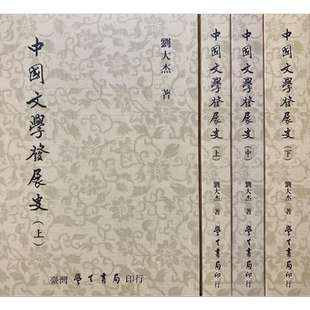 劉大杰 著
中國文學發展史(上)
臺灣 學生書局 印行
中國文學發展史(上)
劉大杰 著
學生書局印行
中國文學發展史(中)
劉大杰 著
學生書局印行
中國文學發展史(下)
劉大杰 著
學生書局印行